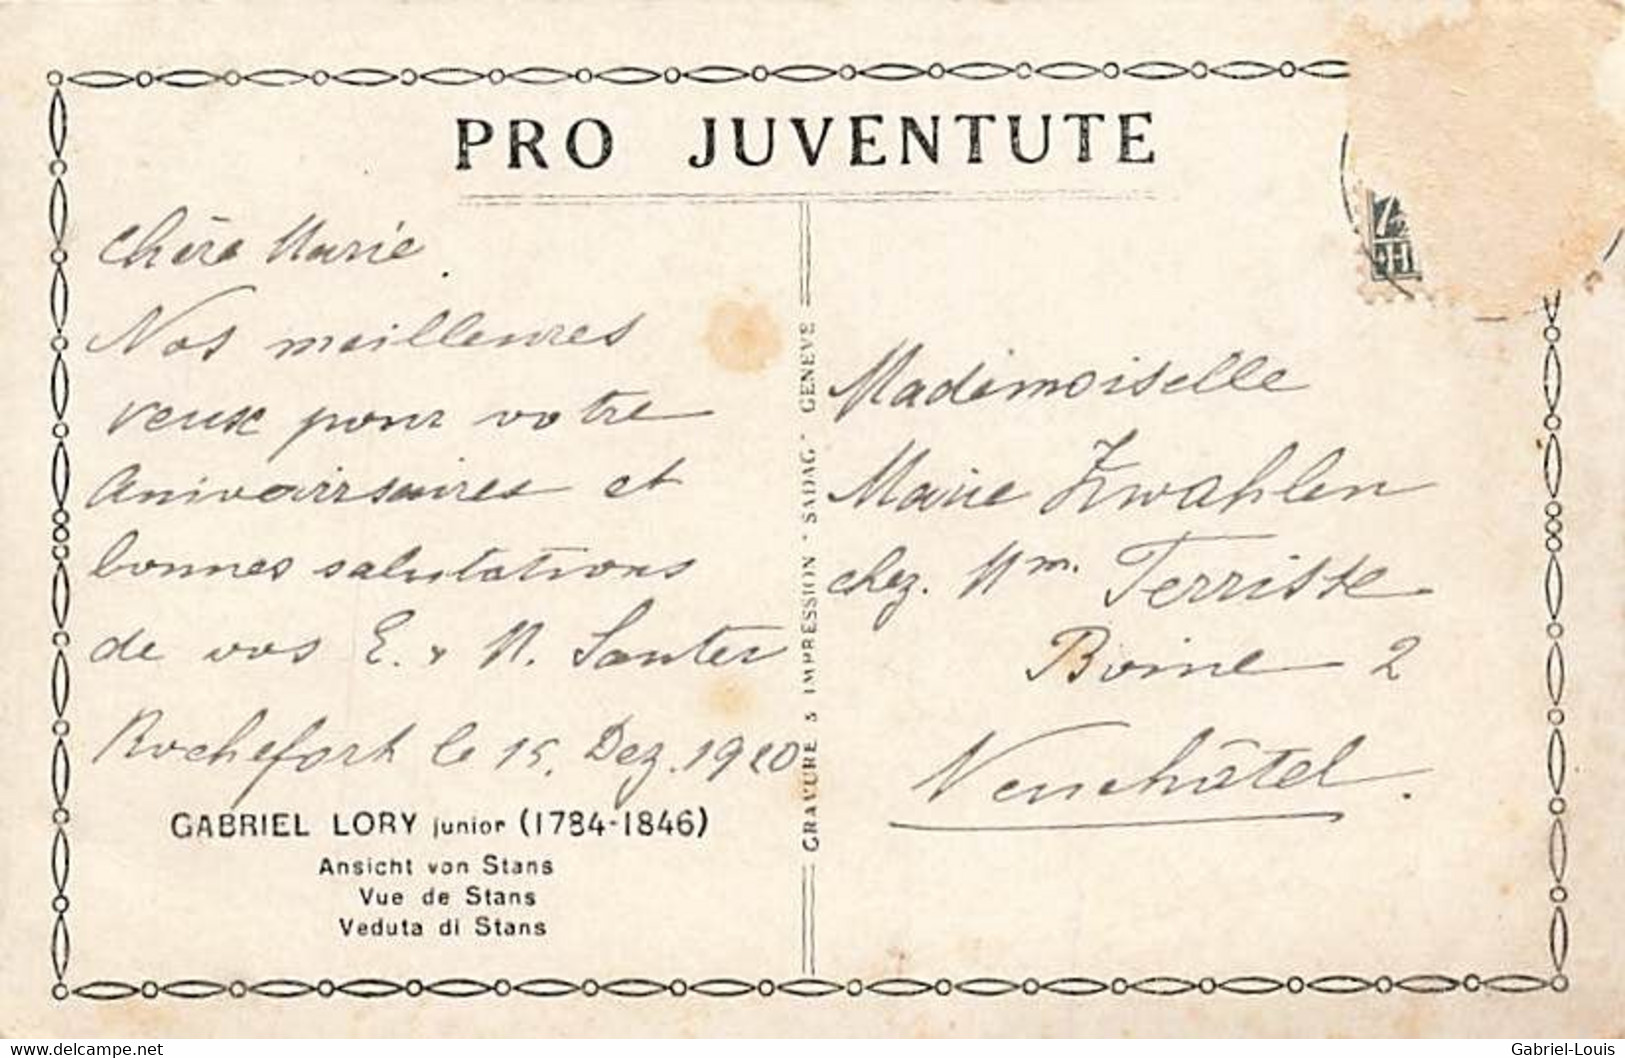 PRO JUVENTUTE
Chère Marie.
Nos meilleures
veux pour votre
anivairsaires et
bonnes salutations
de vos E. & M. Santer
Rochefort le 15. Dez. 1920
GABRIEL LORY junior (1784-1846)
Ansicht von Stans
Vue de Stans
Veduta di Stans
GRAVURE & IMPRESSION "SADAG" GENEVE
Mademoiselle
Marie Zwahlen
chez. Mm. Terrisse
Boine 2
Neuchâtel.
delcampe.net
Gabriel-Louis